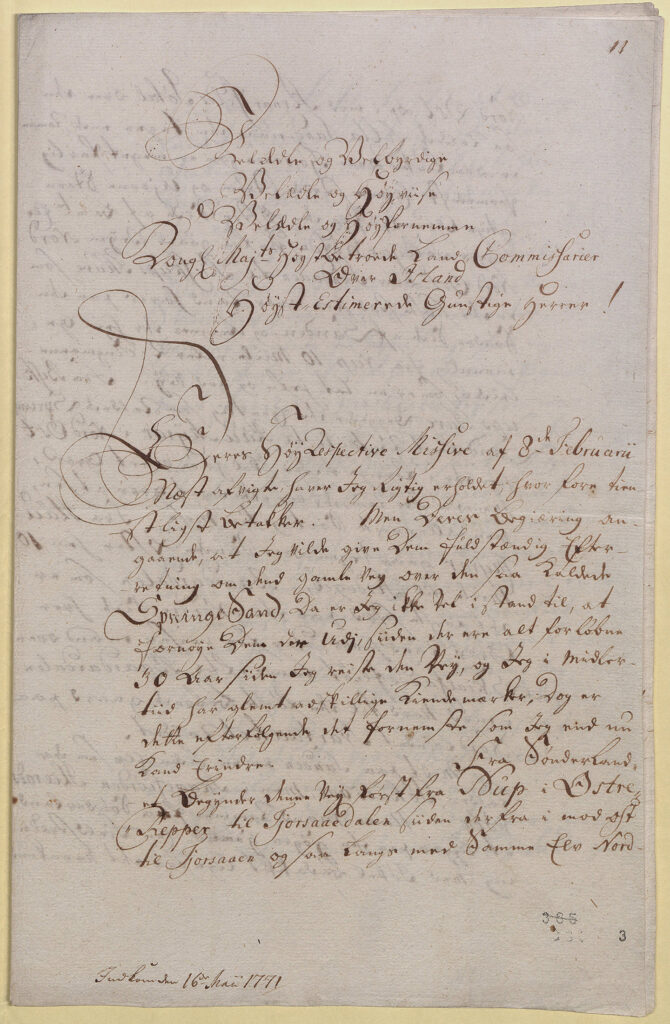 11
Velædle og Velbyrdige
Velædle og Høyviise
Velædle og Høyfornemme
Kongl Maj.ts Høystbetroede Land Commissarier
Over Island
Høyst Estimerede Gunstige Herrer!
Deres Høy Respective Missive af 8de Februarii
Næst afvigte, haver Jeg rigtig erholdet, hvor fore tien
stligst betakker. Men Deres Begiæring an-
gaaende, at Jeg vilde give Dem fuldstændig Efter-
retning om dend gamle Vey over den saa kaldede
Springe Sand, da er Jeg ikke vel i stand til, at
fornøye Dem der Udj, siiden der ere alt forløbne
30 Aar siiden Jeg reiste den Vey, og Jeg i Midler-
tiid har glemt adskillige Kiendemærker, dog er
dette efterfølgende det fornemste som Jeg end nu
Kand Erindre. Fra Sønderland-
et begynder denne Vey først fra Nup i Østre-
Repper til Tjorsaaedalen siiden derfra i mod Øst
til Tjorsaaen og saa langs med Samme Elv Nord-
365
3
Indkom den 16de Maii 1771